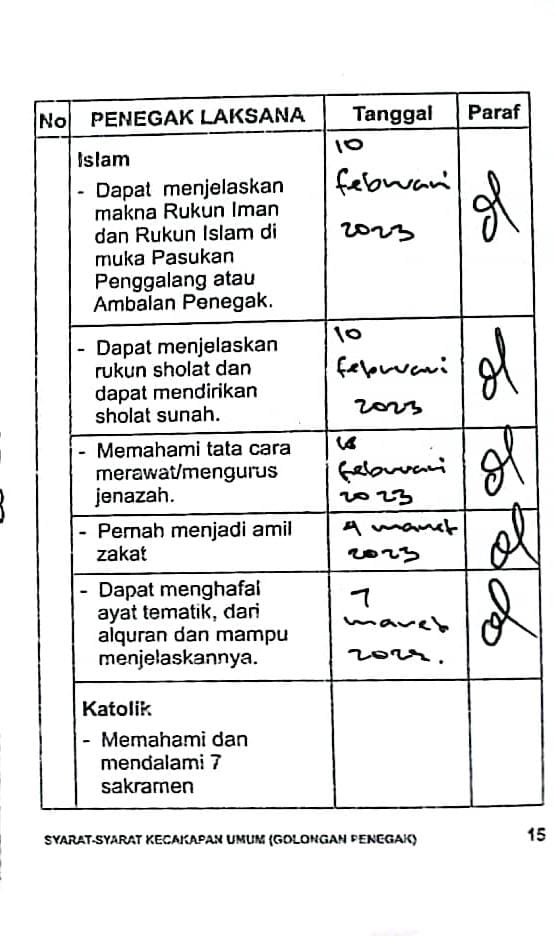 No PENEGAK LAKSANA Tanggal Paraf
Islam
- Dapat menjelaskan
makna Rukun Iman
dan Rukun Islam di
muka Pasukan
Penggalang atau
Ambalan Penegak.
10
Februari
2023
- Dapat menjelaskan
rukun sholat dan
dapat mendirikan
sholat sunah.
10
Februari
2023
- Memahami tata cara
merawat/mengurus
jenazah.
Februari
2023
- Pernah menjadi amil
zakat
maret
2023
- Dapat menghafal
ayat tematik, dari
alquran dan mampu
menjelaskannya.
7
maret
Katolik
- Memahami dan
mendalami 7
sakramen
SYARAT-SYARAT KECAKAPAN UMUM (GOLONGAN PENEGAK) 15